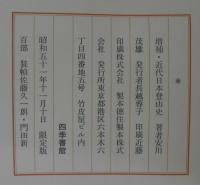 増補・近代日本登山史　著者安川
茂雄　発行者長越尊子　印刷近藤
印刷株式会社　製本徳住製本株式
会社　発行所東京都港区六本木六
丁目四番地五号　竹皮屋ビル内
四季書館
昭和五十一年十一月十日　限定版
百部　装幀佐藤久一朗・門田新